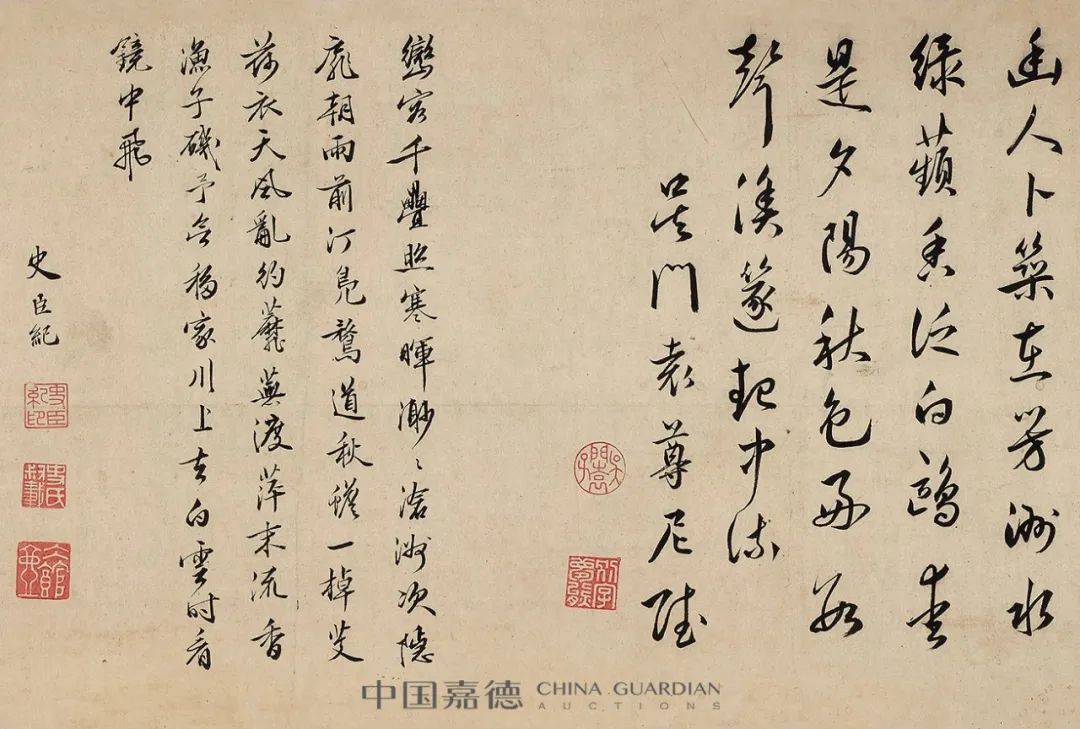 幽人卜築在芳洲水
綠蘋香泛白鷗來
是夕陽秋色好數
聲漁篴起中流
吳門袁尊尼
巒容千疊照寒暉渺〻滄洲次隱
扉朝雨前汀鳧鶩道秋
一棹芰
荷衣天風亂約蘼蕪渡萍末流香
漁子磯予亦移家川上去白雲時看
鏡中飛
史臣紀
史臣紀印
中国嘉德 CHINA GUARDIAN
AUCTIONS